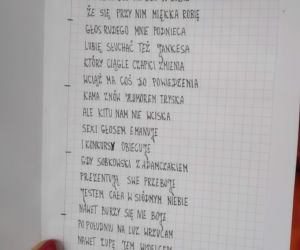 ŻE SIĘ PRZY NIM MIĘKKA ROBIĘ
GŁOS RUDEGO MNIE PODNIECA
LUBIĘ SŁUCHAĆ TEŻ JANKESA
KTÓRY CIĄGLE CZAPKI ZMIENIA
WCIĄŻ MA COŚ DO POWIEDZENIA
KAMA ZNÓW HUMOREM TRYSKA
ALE KITU NAM NIE WCISKA
SEXI GŁOSEM EMANUJE
I KONKURSY OBIECUJE
GDY SOBKOWSKI Z ADAMCZAKIEM
PREZENTUJĄ SWE PRZEBOJE
JESTEM CAŁA W SIÓDMYM NIEBIE
NAWET BURZY SIĘ NIE BOJĘ
PO POŁUDNIU NA LUZ WRZUCAM
NAWET ZUPĘ JEM WIDELCEM